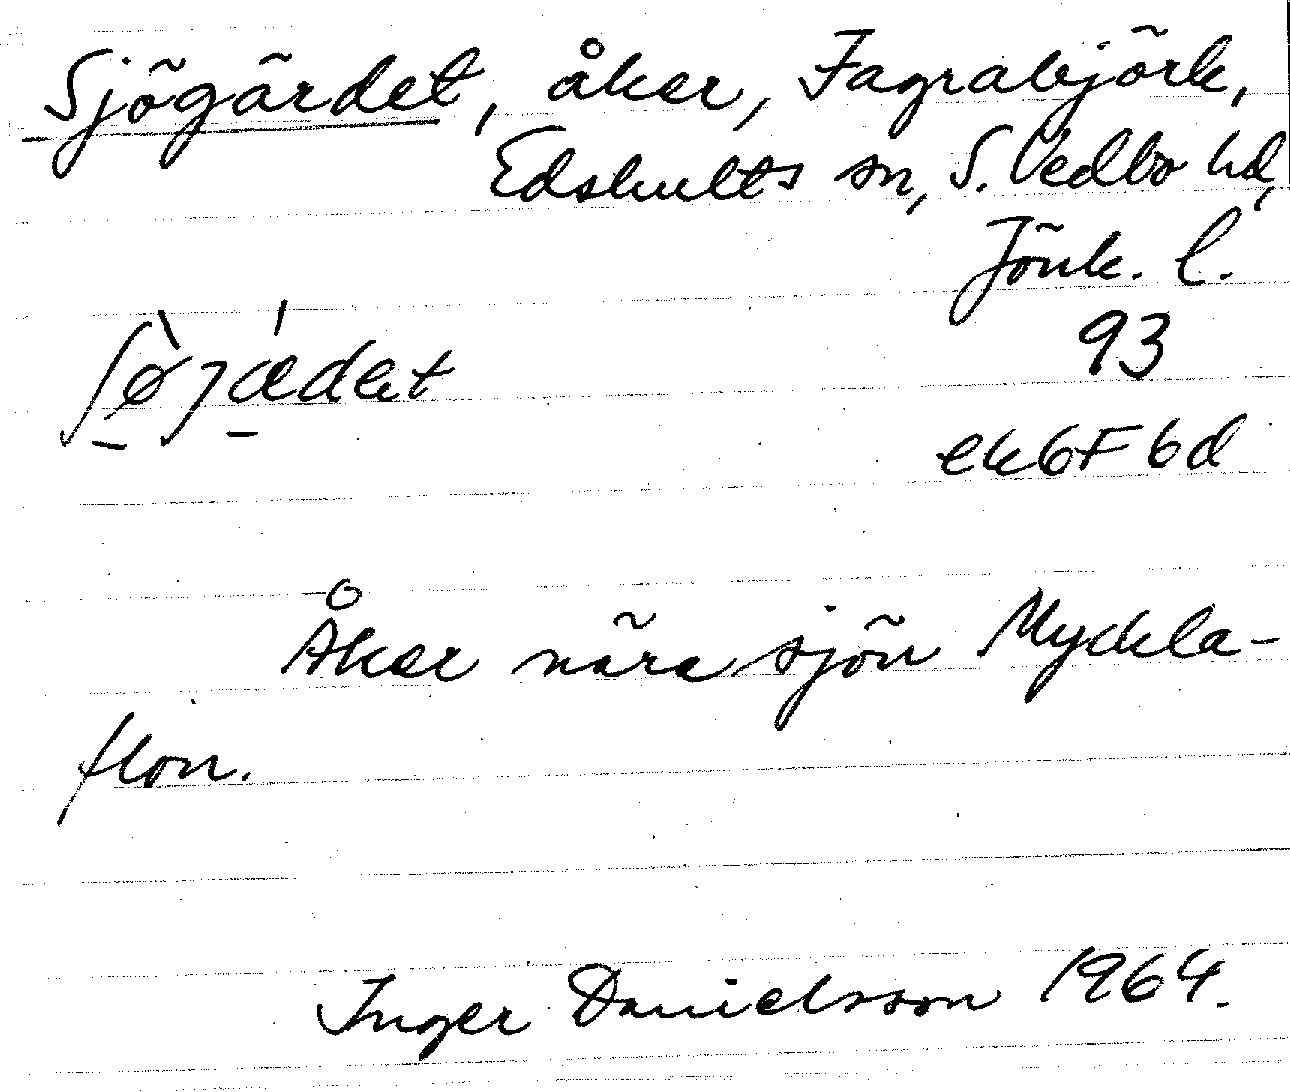 Sjögärdet, åker, Fagrabjörk,
Edshults sn, S. Vedbo hd,
Jönk. l.
ʃø̠̀jǽ̠dət 93
ek6F6d
Åker nära sjön Myckla-
flon.
Inger Danielsson 1964.